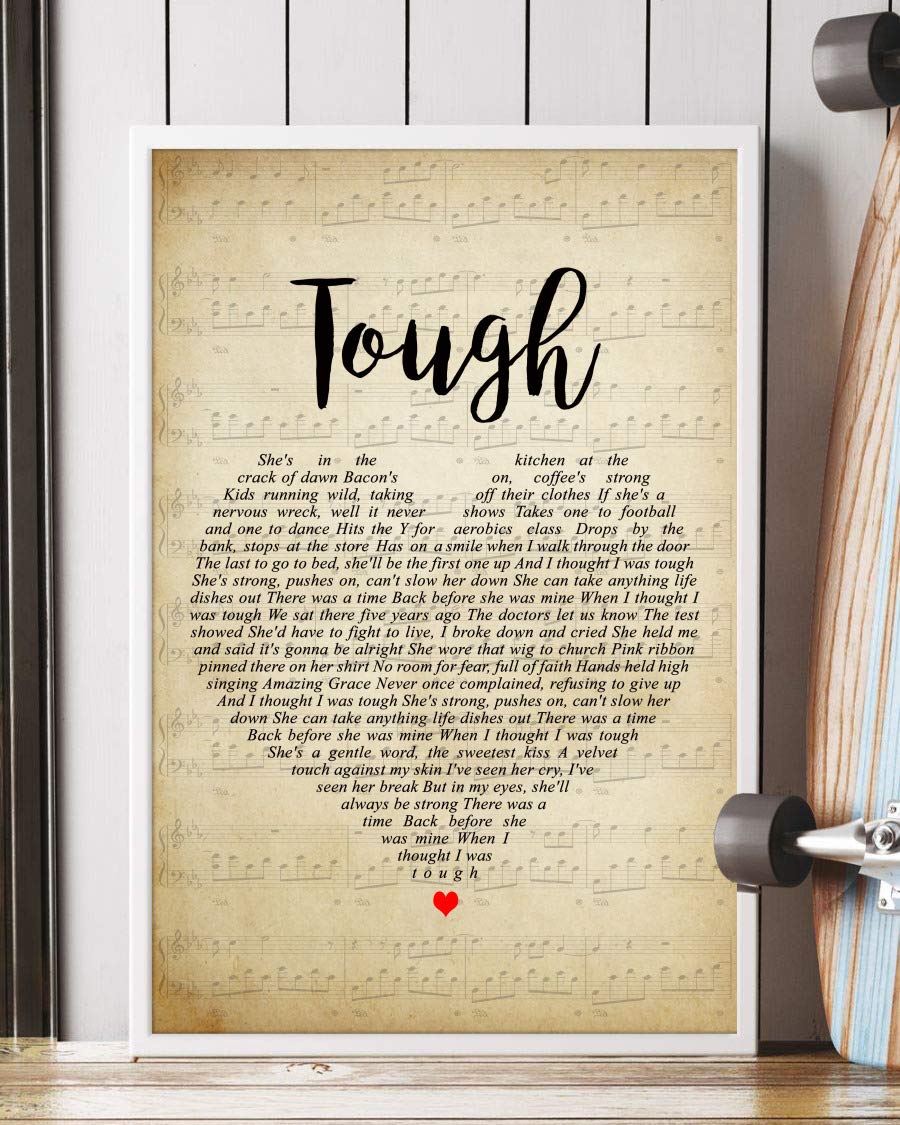 Tough
She's in the kitchen at the
crack of dawn Bacon's on, coffee's strong
Kids running wild, taking off their clothes If she's a
nervous wreck, well it never shows Takes one to football
and one to dance Hits the Y for aerobics class Drops by the
bank, stops at the store Has on a smile when I walk through the door
The last to go to bed, she'll be the first one up And I thought I was tough
She's strong, pushes on, can't slow her down She can take anything life
dishes out There was a time Back before she was mine When I thought I
was tough We sat there five years ago The doctors let us know The test
showed She'd have to fight to live, I broke down and cried She held me
and said it's gonna be alright She wore that wig to church Pink ribbon
pinned there on her shirt No room for fear, full of faith Hands held high
singing Amazing Grace Never once complained, refusing to give up
And I thought I was tough She's strong, pushes on, can't slow her
down She can take anything life dishes out There was a time
Back before she was mine When I thought I was tough
She's a gentle word, the sweetest kiss A velvet
touch against my skin I've seen her cry, I've
seen her break But in my eyes, she'll
always be strong There was a
time Back before she
was mine When I
thought I was
tough